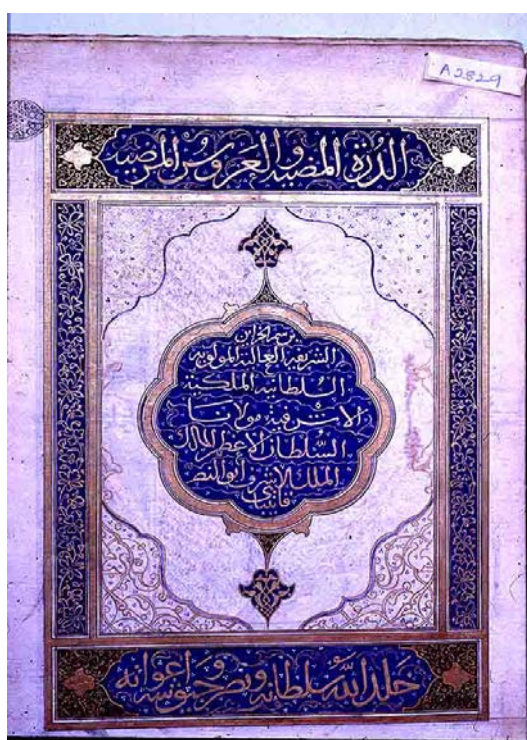 A2829
الدرة المضية والعروس المرضية
برسم الخزانة
الشريفة العالية المولوية
السلطانية الملكية
الاشرفية مولانا
السلطان الاعظم المالك
الملك الاشرف ابو النصر
قايتباى
خلد الله سلطانه ونصر جيوشه واعوانه